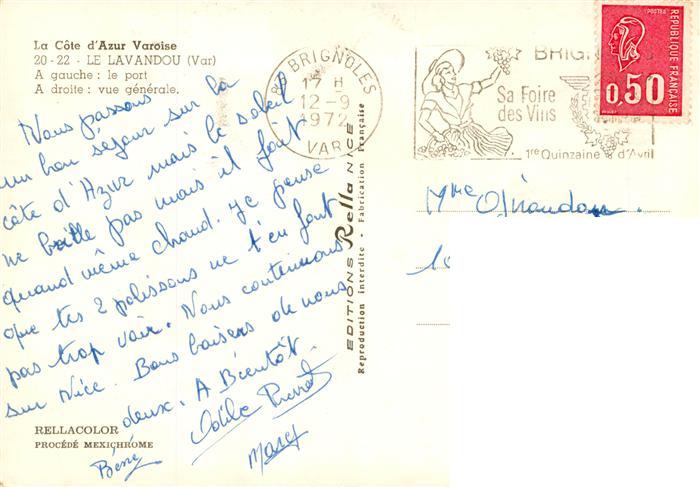 La Côte d'Azur Varoise
20-22 - LE LAVANDOU (Var)
A gauche : le port
A droite : vue générale.
Nous passons
un bon séjour sur la
côte d'Azur mais le soleil
ne brille pas mais il fait
quand même chaud. Je pense
que tes 2 polissons ne t'en font
pas trop voir. Nous continuons
sur Nice. Bons baisers de nous
deux. A Bientôt.
Odile
RELLACOLOR
PROCÉDÉ MEXICHROME
EDITIONS Rella NICE
Reproduction interdite - Fabrication Française
83 BRIGNOLES
17 H
12-9
1972
VAR
BRIGN
Sa Foire
des Vins
1re Quinzaine d'Avril
POSTES
REPUBLIQUE FRANÇAISE
0,50
Mme